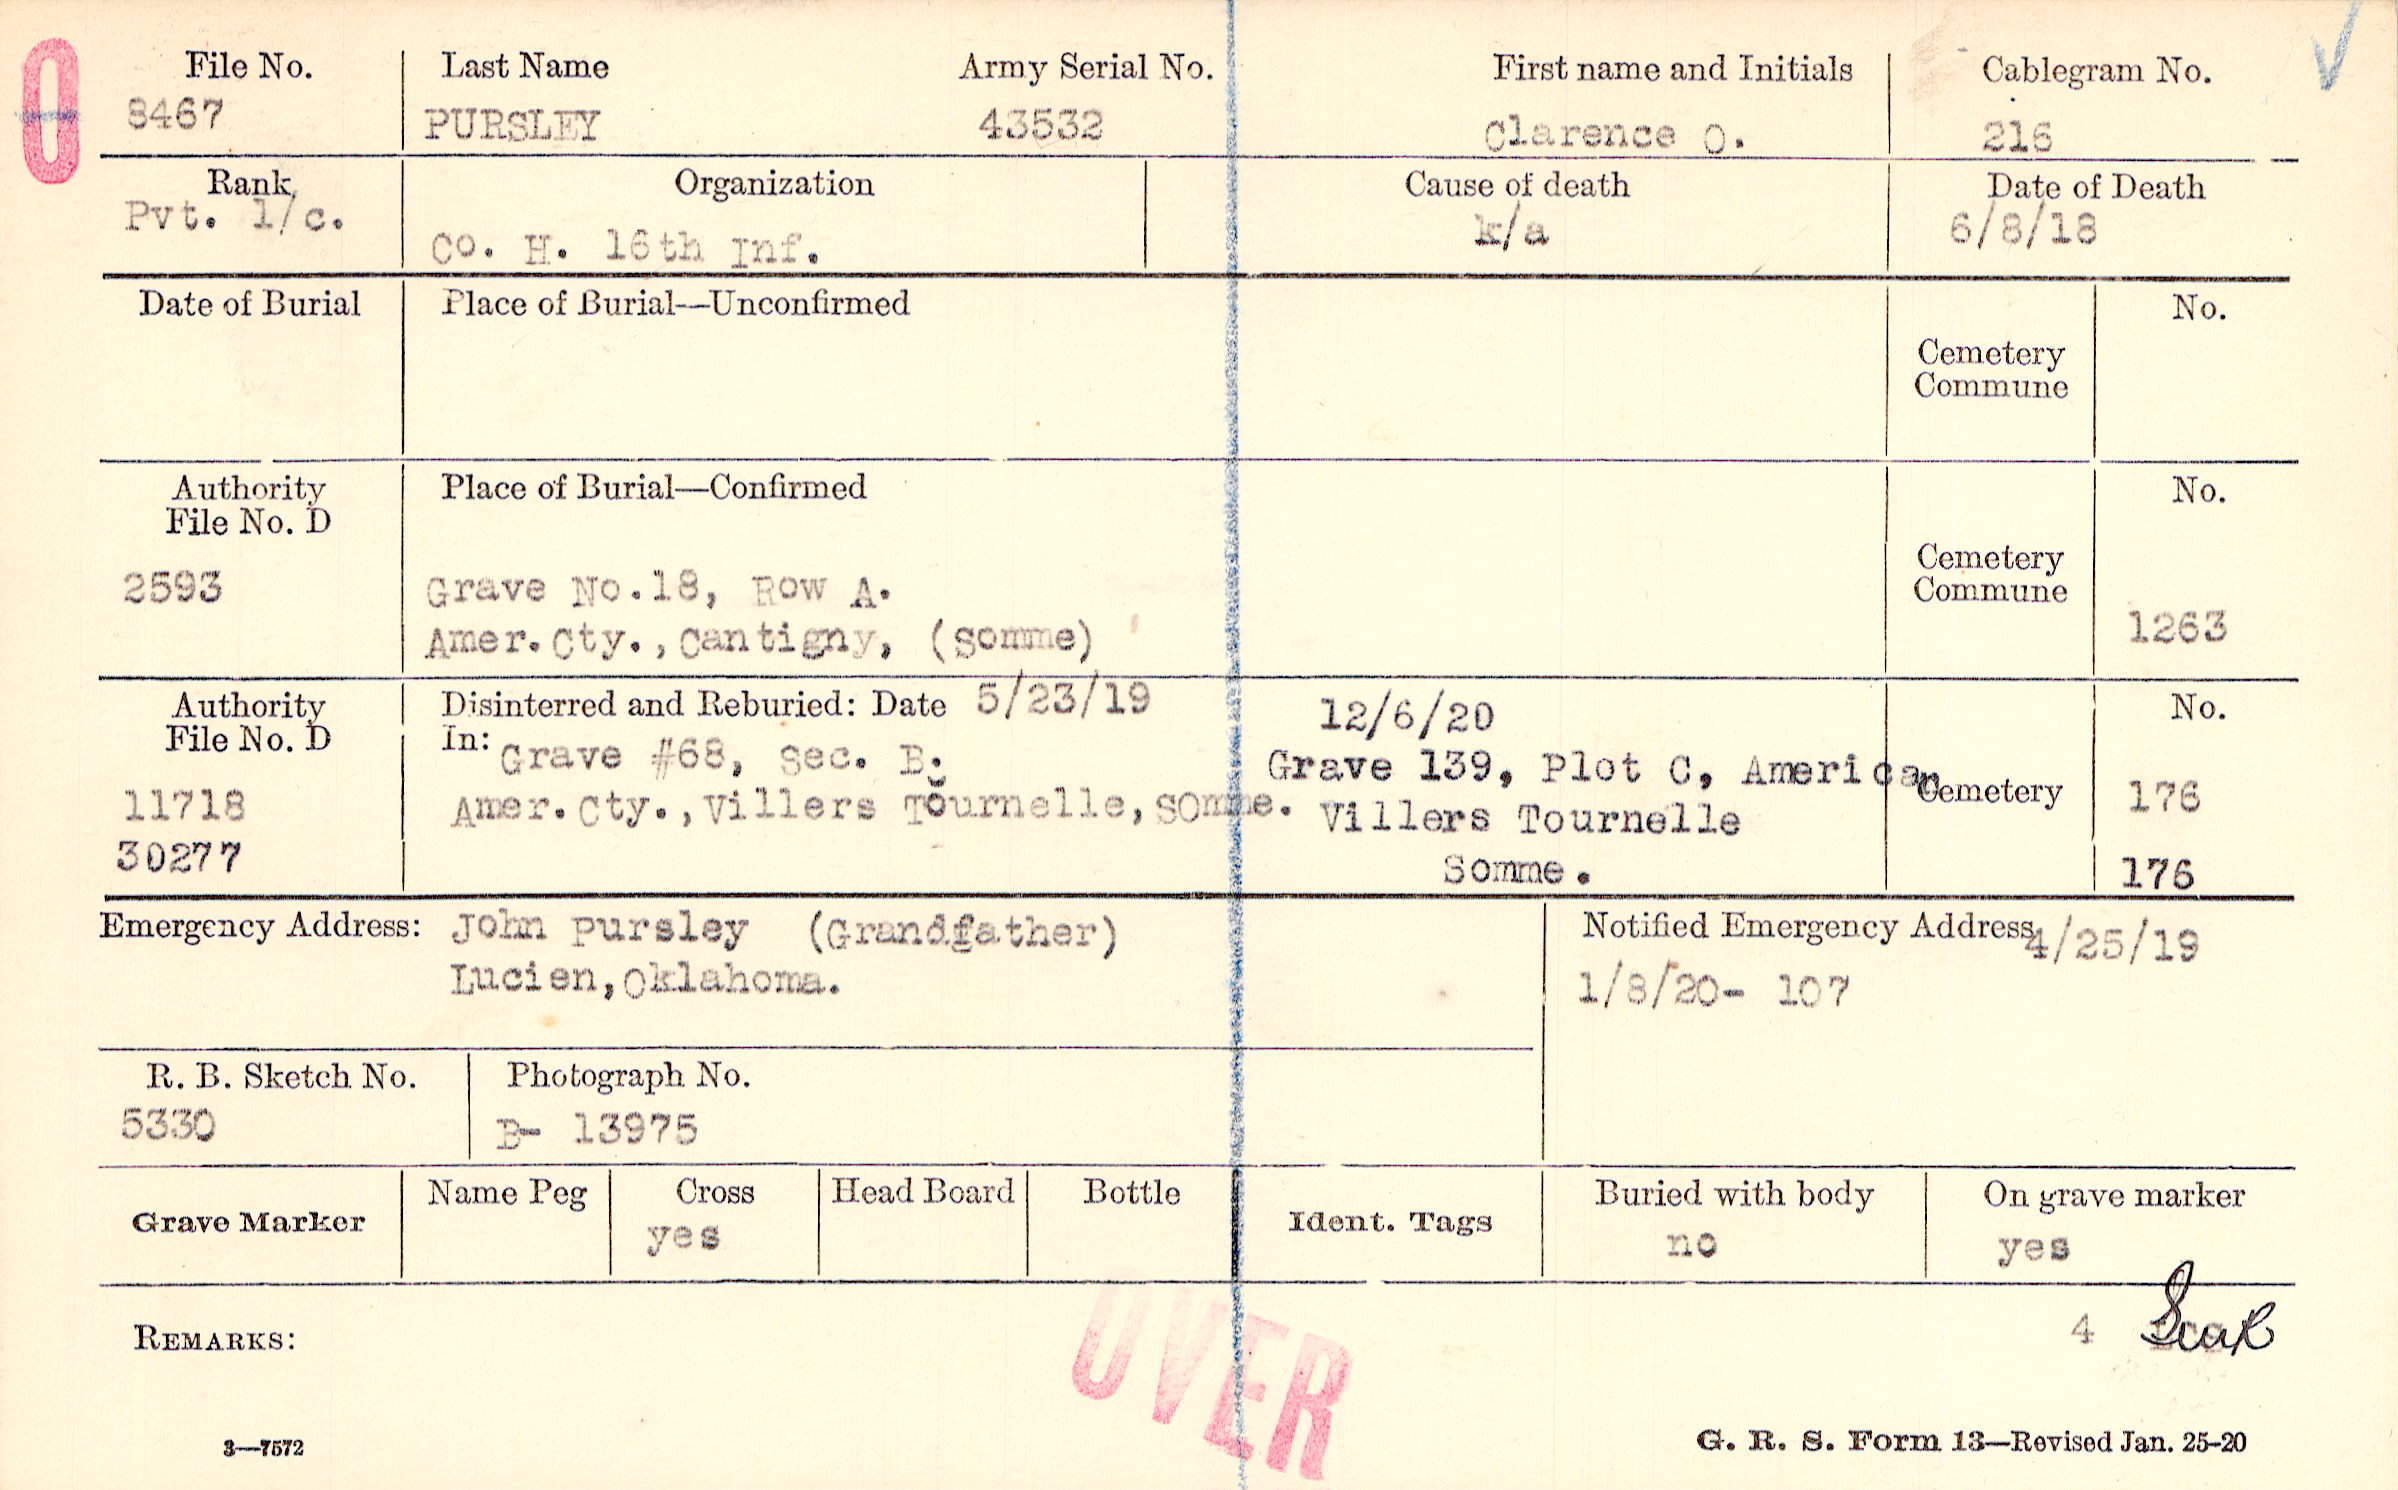 O
File No. Last Name Army Serial No. First name and Initials Cablegram No.
8467 PURSLEY 43532 Clarence O. 216
Rank Organization Cause of death Date of Death
Pvt. 1/c. Co. H. 16th Inf. k/a 6/8/18
Date of Burial Place of Burial—Unconfirmed No.
Cemetery
Commune
Authority Place of Burial—Confirmed No.
File No. D
Cemetery
Commune
2593 Grave No.18, Row A.
Amer.Cty.,Cantigny, (Somme) 1263
Authority Disinterred and Reburied: Date 5/23/19 12/6/20 No.
File No. D In: Grave #68, Sec. B.
Grave 139, Plot C, American Cemetery 176
11718 Amer.Cty.,Villers Tournelle,Somme. Villers Tournelle
30277 Somme. 176
Emergency Address: John Pursley (Grandfather) Notified Emergency Address 4/25/19
Lucien,Oklahoma. 1/8/20- 107
R. B. Sketch No. Photograph No.
5330 B- 13975
Grave Marker Name Peg Cross Head Board Bottle Ident. Tags Buried with body On grave marker
yes no yes
REMARKS: 4
OVER
3—7572 G. R. S. Form 13—Revised Jan. 25-20